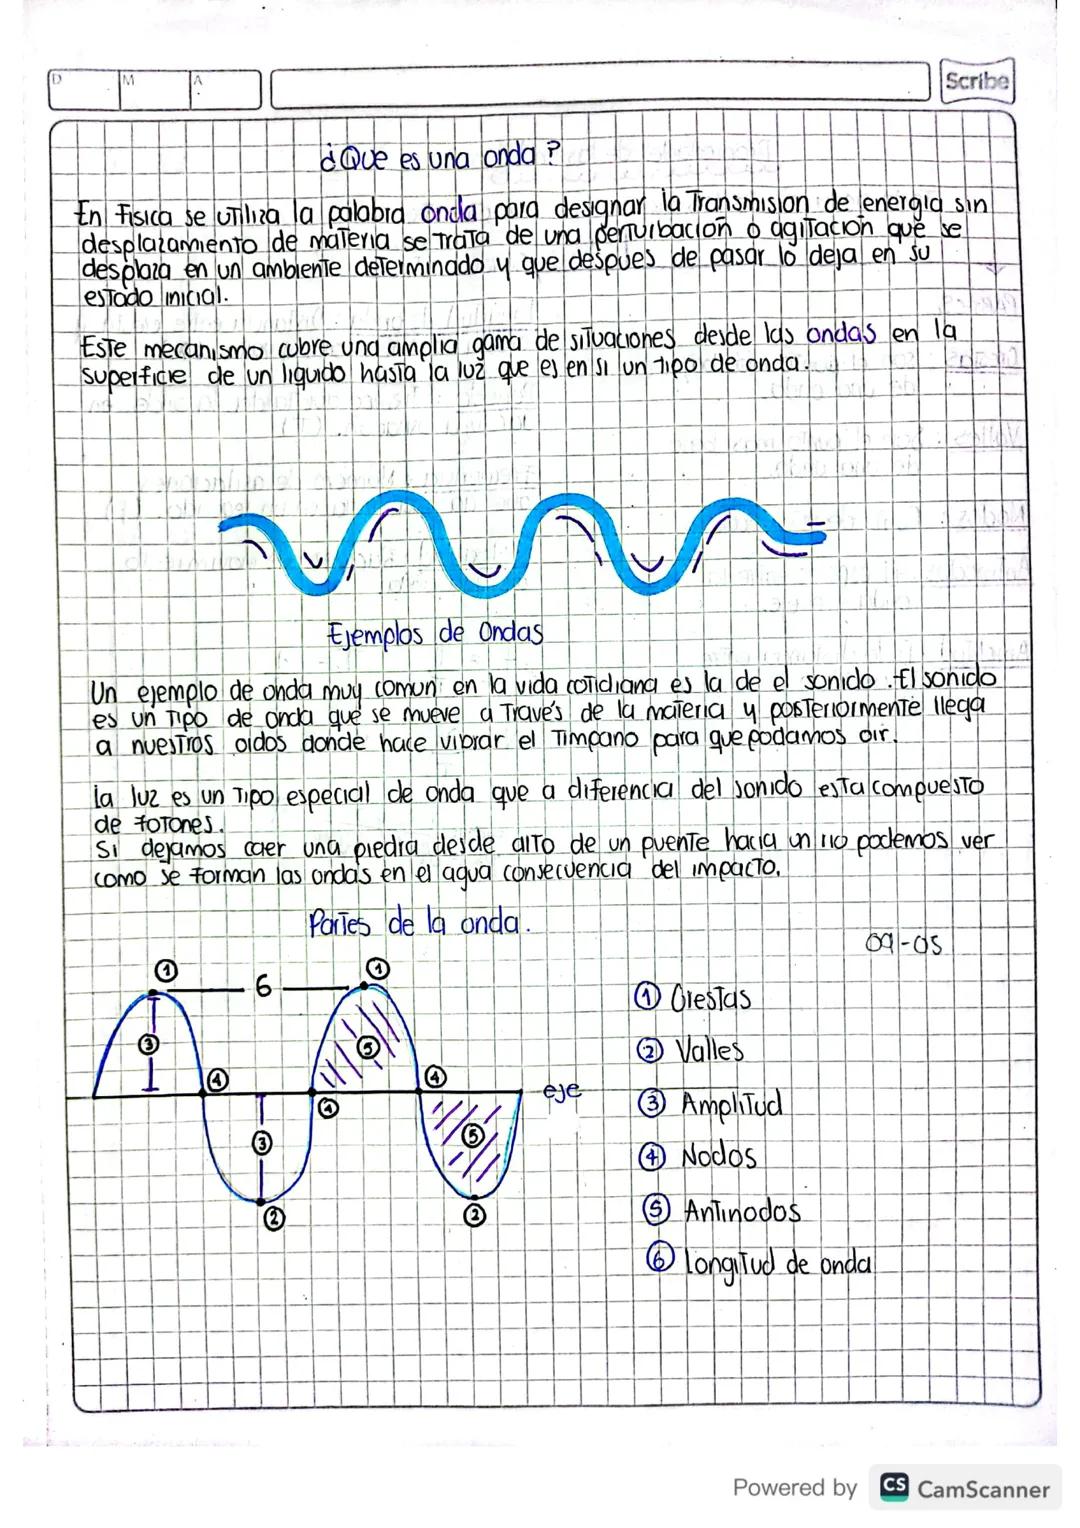 D M A Scribe
¿Que es una onda?
En Fisica se utiliza la palabra onda para designar la Transmision de energia sin
desplazamiento de materia se trata de una perturbación o agitación que se
desplaza en un ambiente determinado y que despues de pasar lo deja en su
estado inicial.
Este mecanismo cubre una amplia gama de situaciones desde las ondas en la
superficie de un liquido hasta la luz que es en si un tipo de onda.
Ejemplos de Ondas
Un ejemplo de onda muy comun en la vida cotidiana es la de el sonido. El sonido
es un tipo de onda que se mueve a través de la materia y posteriormente llega
a nuestros oidos donde hace vibrar el timpano para que podamos oir.
la luz es un tipo especial de onda que a diferencia del sonido esta compuesto
de fotones.
Si dejamos caer una piedra desde alto de un puente hacia un rio podemos ver
como se forman las ondas en el agua consecuencia del impacto.
Partes de la onda.
09-05
1 6 1
3 5
4 4
eje
4
3 5
2 2
1 Crestas
2 Valles
3 Amplitud
4 Nodos
5 Antinodos
6 Longitud de onda
Powered by CS CamScanner